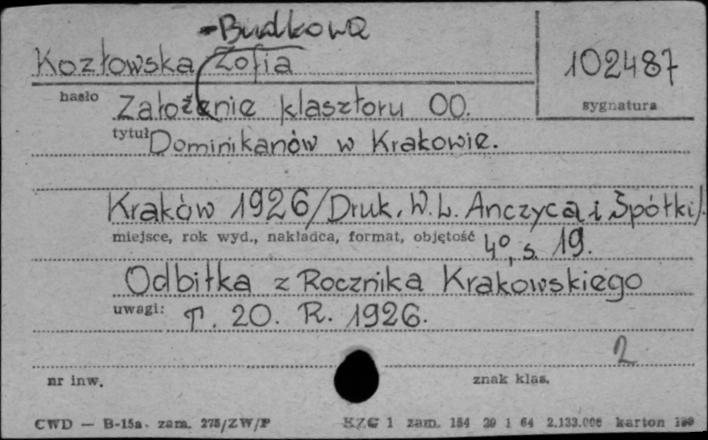 -Budkowa
Kozłowska Zofia 102487
hasło Założenie klasztoru OO. sygnatura
tytuł Dominikanów w Krakowie.
Kraków 1926/Druk. W. L. Anczyca i Spółki/.
miejsce, rok wyd., nakładca, format, objętość 4°, s. 19.
Odbitka z Rocznika Krakowskiego
uwagi: T. 20. R. 1926.
2
nr inw. znak klas.
CWD — B-15a. zam. 275/ZW/P KZG 1 zam. 154 29 1 64 2.133.000 karton